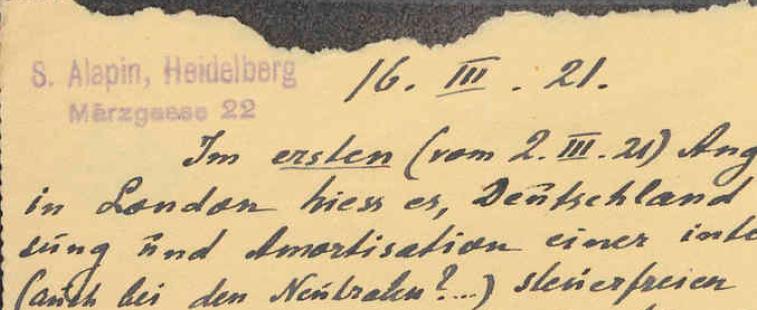 S. Alapin, Heidelberg
Märzgasse 22
16. III. 21.
Im ersten (vom 2. III. 21) Ang
in London hiess es, Deutschland
sung und Amortisation einer inte
(auch bei den Neutralen?...) steuerfreien